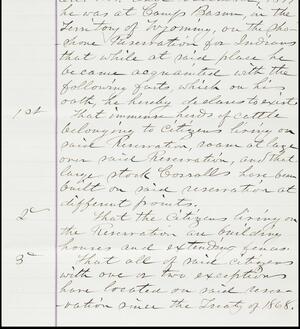 he was at Camp Brown, in the
Territory of Wyoming, on the Sho-
shone Reservation for Indians
that while at said place he
became acquainted with the
following facts which on his
oath, he hereby declares to exist:
1st That immense herds of cattle
belonging to citizens living on
said Reservation, roam at large
over said Reservation, and that
large stock Corralls have been
built on said reservation at
different points.
2d That the Citizens living on
the Reservation are building
houses and extending
3d That all of said citizens
with one or two exceptions
have located on said reser-
-vation since the Treaty of 1868.